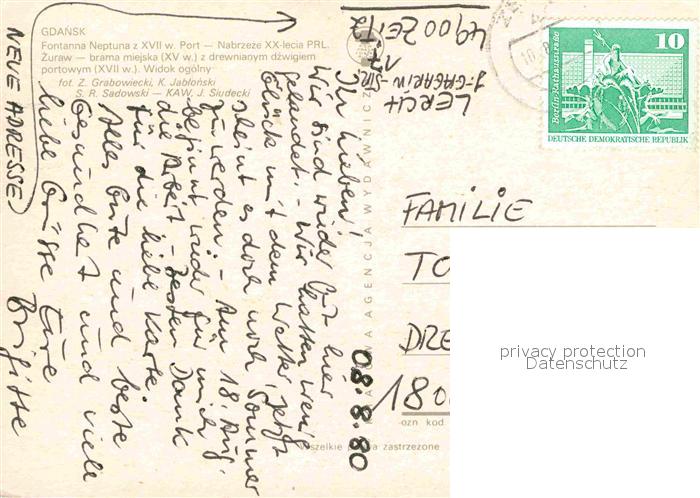 GDAŃSK
Fontanna Neptuna z XVII w. Port — Nabrzeże XX-lecia PRL.
Żuraw — brama miejska (XV w.) z drewnianym dźwigiem
portowym (XVII w.). Widok ogólny
fot. Z. Grabowiecki, K. Jabłoński
S. R. Sadowski - KAW, J. Siudecki
NEUE ADRESSE
LERCH
J.-GAGARIN-STR.
17
4900 ZEITZ
10
Berlin, Rathausstraße
DEUTSCHE DEMOKRATISCHE REPUBLIK
Ihr Lieben!
Wir sind wieder gut hier
gelandet. - Wir hatten wenig
Glück mit dem Wetter, jetzt
scheint es doch noch Sommer
zu werden. - Am 18. Aug.
beginnt wieder für mich
die Arbeit - Besten Dank
für die liebe Karte.
Alles Gute und beste
Gesundheit und viele
liebe Grüsse Eure
Brigitte
08.8.80
AGENCJA WYDAWNICZA
FAMILIE
TO
DRE
180
-ozn kod
Wszelkie prawa zastrzeżone
privacy protection
Datenschutz